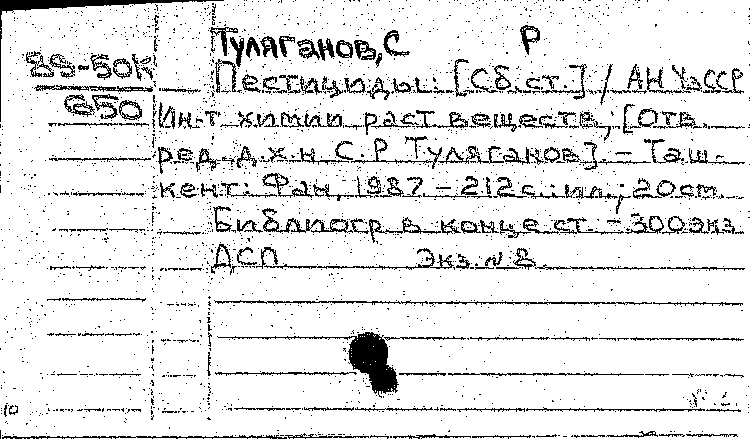 Туляганов, С Р
89-50К
Пестициды: [Сб. ст.] / АН УзССР
650
Ин-т химии раст. веществ; [Отв.
ред. д.х.н С.Р Туляганов]. - Таш-
кент: Фан, 1987. - 212с.: ил.; 20см.
Библиогр в конце ст. - 300экз
ДСП. Экз. № 8.
10